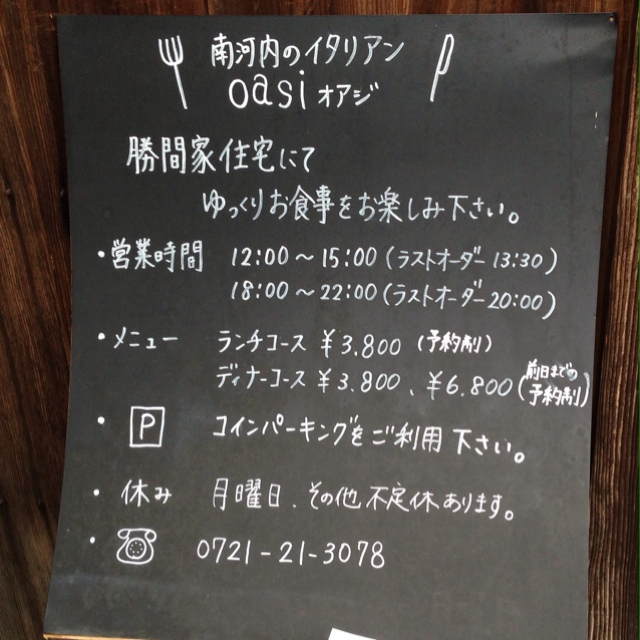 南河内のイタリアン
oasi オアジ
勝間家住宅にて
ゆっくりお食事をお楽しみ下さい。
・営業時間 12:00～15:00(ラストオーダー13:30)
18:00～22:00(ラストオーダー20:00)
・メニュー ランチコース ¥3.800 (予約制)
ディナーコース ¥3.800、¥6.800(前日までの予約制)
・P コインパーキングをご利用下さい。
・休み 月曜日、その他不定休あります。
・0721-21-3078